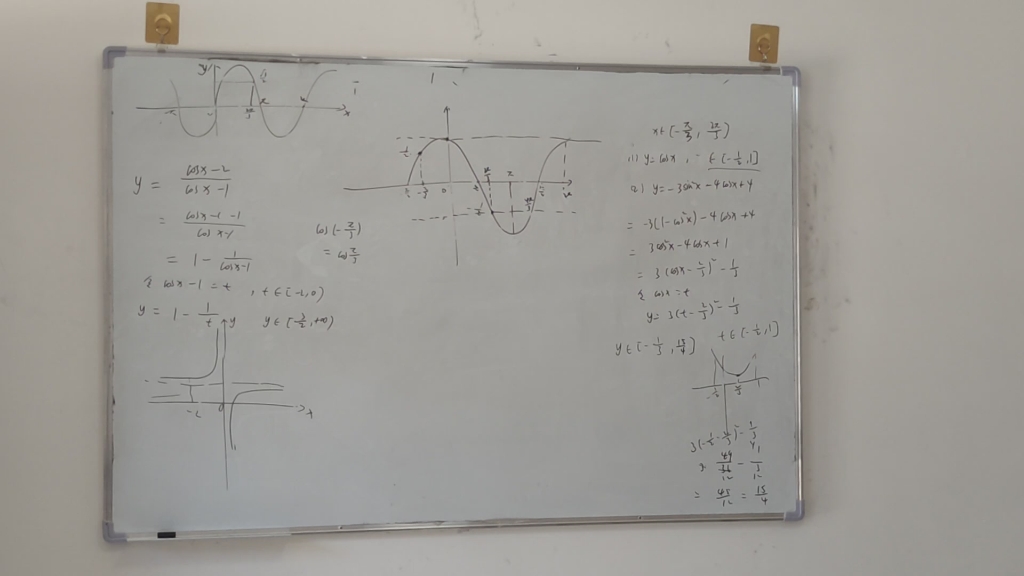 y
x
y = (cosx-2)/(cosx-1)
= (cosx-1-1)/(cosx-1)
= 1 - 1/(cosx-1)
令 cosx-1 = t , t∈[-2,0)
y = 1 - 1/t   y∈[3/2,+∞)
y
-2 0 t
cos(-π/3)
= cos π/3
0 π
x∈[-π/3, 2π/3)
(1) y=cosx, ∈[-1/2,1]
(2) y=-3sin²x-4cosx+4
= -3(1-cos²x)-4cosx+4
= 3cos²x-4cosx+1
= 3(cosx-2/3)²-1/3
令 cosx=t
y=3(t-2/3)²-1/3
t∈[-1/2,1]
y∈[-1/3, 15/4]
3(-1/2-2/3)²-1/3
= 45/12 = 15/4